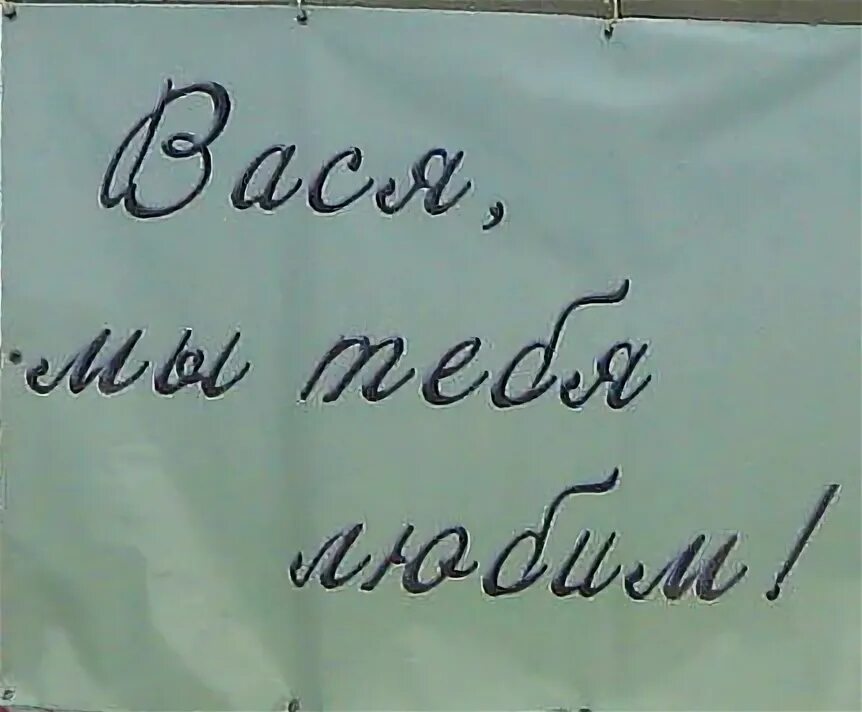 Вася,
мы тебя
любим!